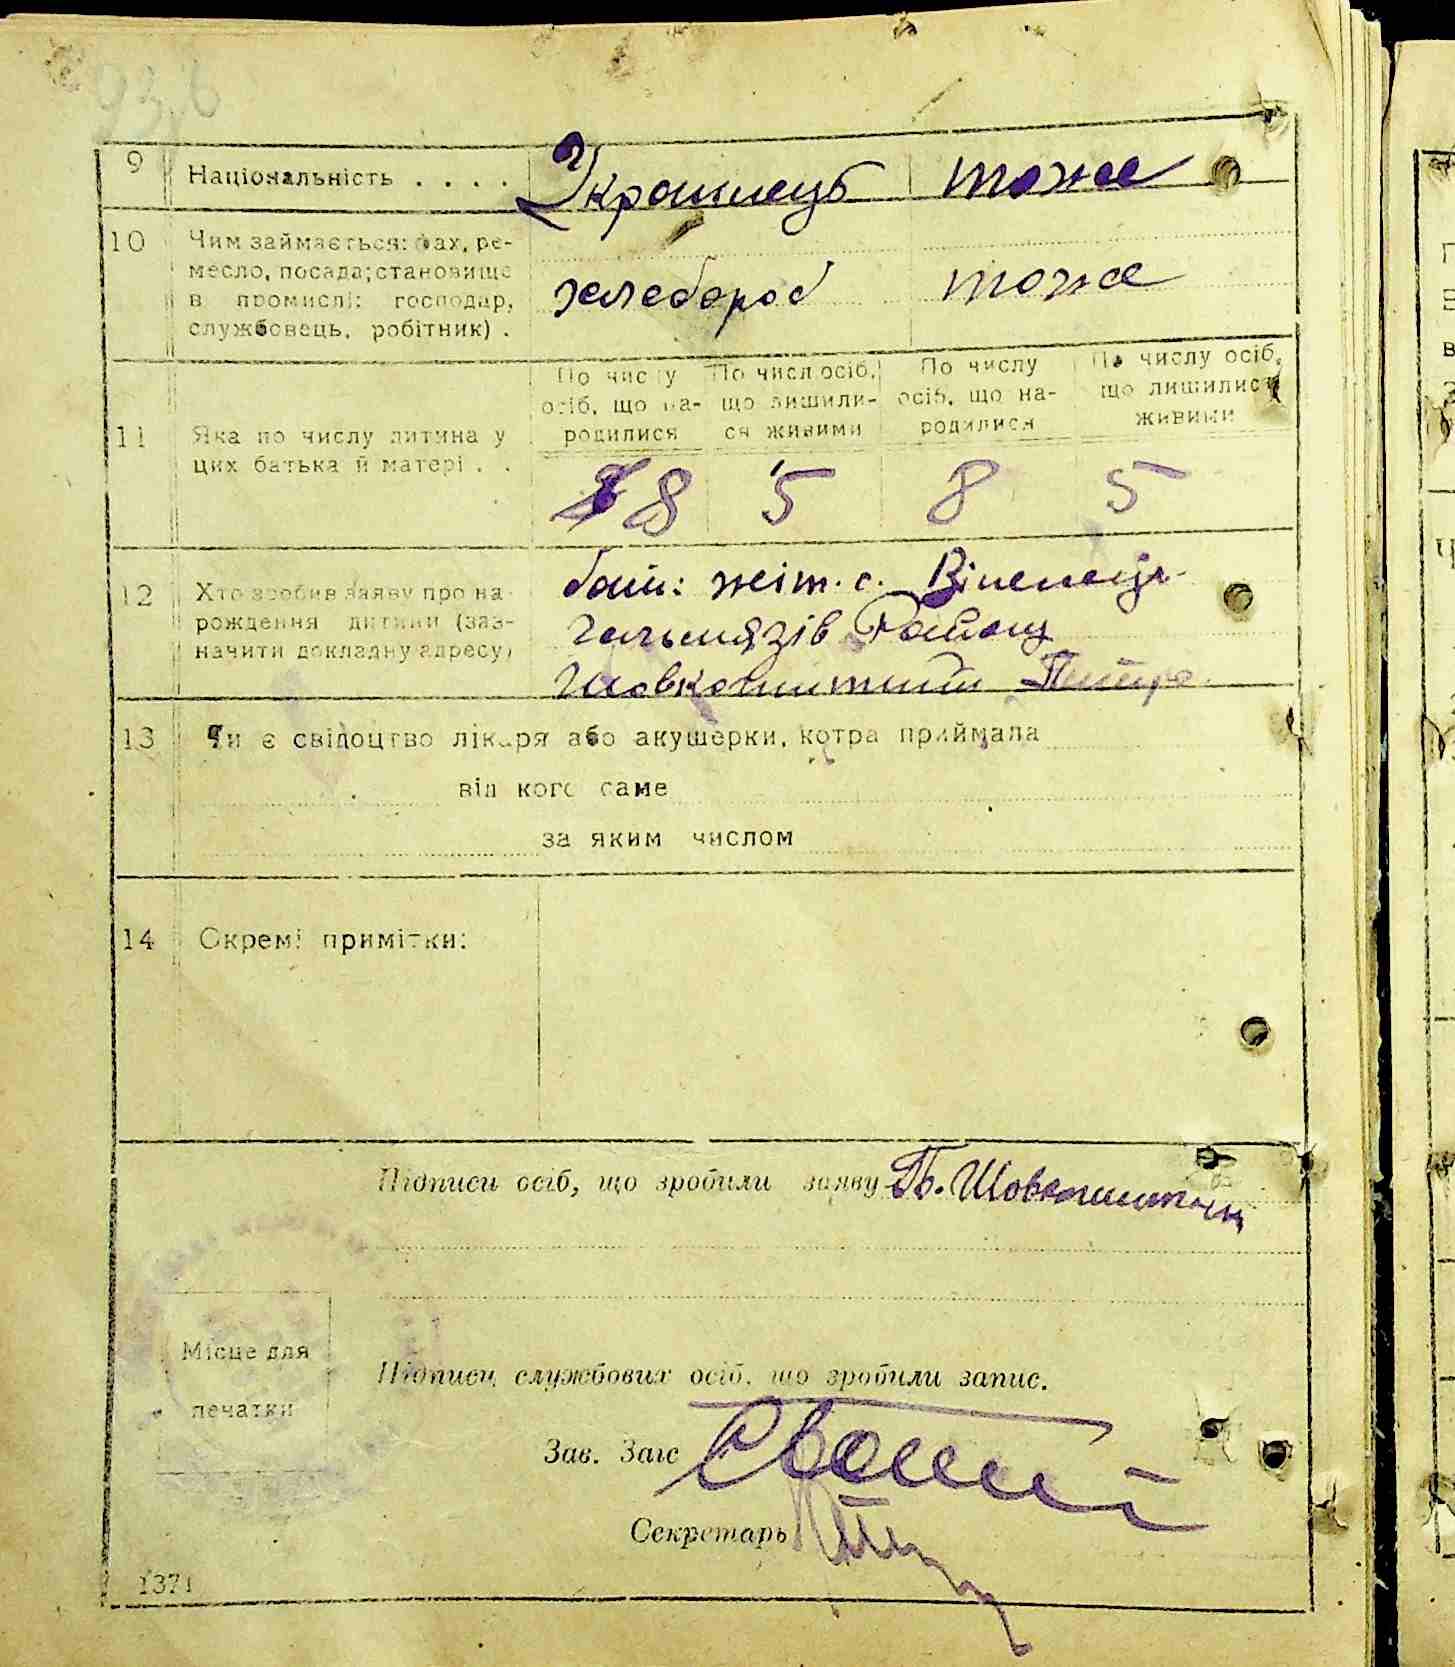 9 Національність . . . . Українець тоже
10 Чим займається: фах, ре-
месло, посада; становище
в промислі: господар,
службовець, робітник) .
хлебороб тоже
По числу осіб, що на-родилися
По числ осіб, що лишили-ся живими
По числу осіб, що на-родилися
По числу осіб, що лишилися живими
11 Яка по числу дитина у
цих батька й матері . .
8 5 8 5
12 Хто зробив заяву про на-
рождення дитини (заз-
начити докладну адресу)
бать: жіт. с. Віпенець
Гельмязів Району
Шовкошитний Петро
13 Чи є свідоцтво лікаря або акушерки, котра приймала
від кого саме
за яким числом
14 Окремі примітки:
Підписи осіб, що зробили заяву П. Шовкошитний
Місце для
печатки
Підписи службових осіб, що зробили запис.
Зав. Загс
Секретарь
1371